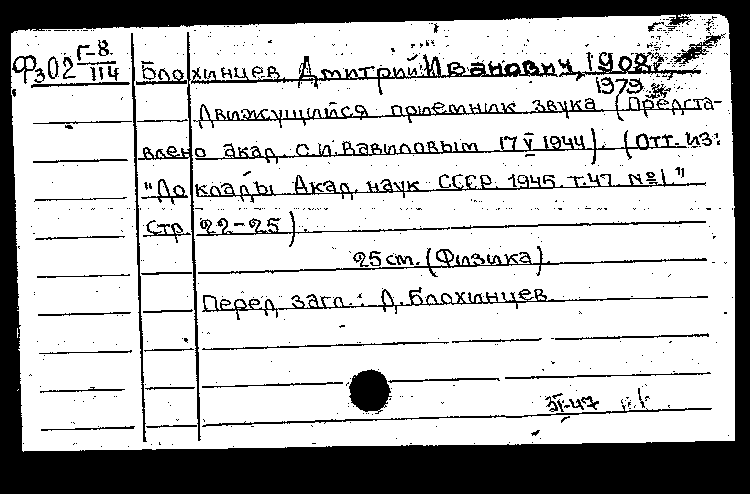 Фз02 Г-8/114 Блохинцев, Дмитрий Иванович, 1908
1979
Движущийся приемник звука. (Представ-
влено акад. С.И. Вавиловым 17 V 1944). (Отт. из:
"Доклады Акад. наук СССР. 1945. т. 47. №1."
стр. 22-25).
25 cm. (Физика).
Перед загл.: Д. Блохинцев.